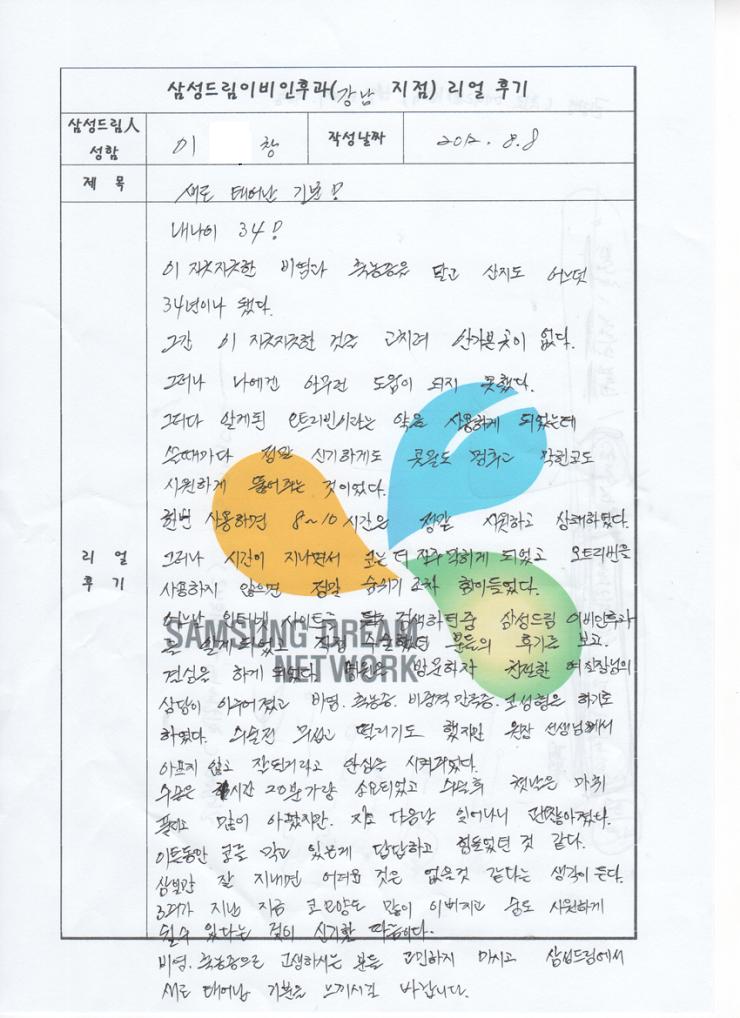 삼성드림이비인후과(강남 지점) 리얼 후기
삼성드림人 성함
이 창
작성날짜
2012. 8. 8
제 목
새로 태어난 기분!
리 얼 후 기
내나이 34!
이 지긋지긋한 비염과 축농증을 달고 산지도 어느덧
34년이나 됐다.
그간 이 지긋지긋한 것을 고치려 안가본곳이 없다.
그러나 나에겐 아무런 도움이 되지 못했다.
그러다 알게된 오트리빈이라는 약을 사용하게 되었는데
쓸때마다 정말 신기하게도 콧물도 멈추고 막힌코도
시원하게 뚫어지는 것이었다.
한번 사용하면 8~10시간은 정말 시원하고 상쾌하였다.
그러나 시간이 지나면서 코는 더 자주 막히게 되었고 오트리빈을
사용하지 않으면 정말 숨쉬기 조차 힘이들었다.
인터넷 사이트를 검색하던중 삼성드림 이비인후과
를 알게되었고 직접 수술했던 분들의 후기를 보고.
결심을 하게 되었다. 병원을 방문하자 친절한 여실장님의
상담이 이루어졌고 비염. 축농증. 비중격 만곡증. 코성형을 하기로
하였다. 수술전 무섭고 떨리기도 했지만 원장 선생님께서
아프지 않고 잘된거라고 안심을 시켜주었다.
수술은 1시간 20분가량 소요되었고 수술후 첫날은 마취
풀리고 많이 아팠지만. 자고 다음날 일어나니 괜찮아졌다.
이틀동안 코를 막고 있는게 답답하고 힘들었던 것 같다.
삼일간 잘 지내면 어려울 것은 없을것 같다는 생각이 든다.
지난 지금 코모양도 많이 이뻐지고 숨도 시원하게
쉴수 있다는 것이 신기할 따름이다.
비염. 축농증으로 고생하시는 분들 고민하지 마시고 삼성드림에서
새로 태어남 기분을 느끼시길 바랍니다.
SAMSUNG DREAM
NETWORK